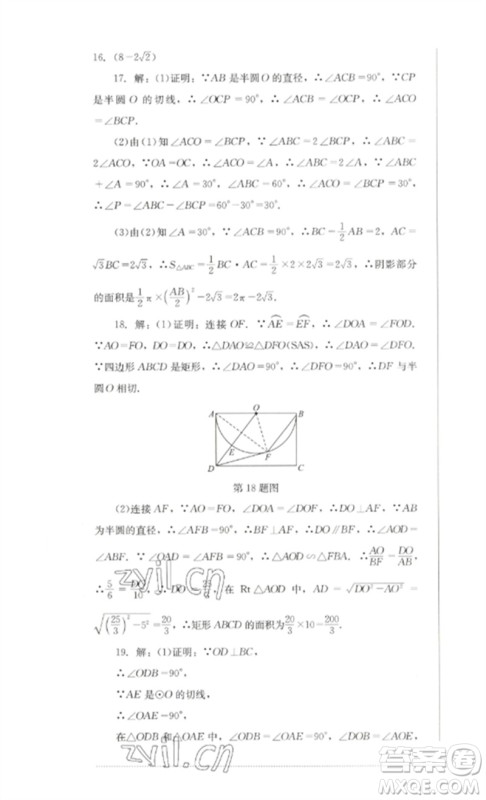 16. (8-2√2)
17. 解：(1)证明：∵AB是半圆O的直径，∴∠ACB=90°，∵CP
是半圆O的切线，∴∠OCP=90°，∴∠ACB=∠OCP，∴∠ACO
=∠BCP.
(2)由(1)知∠ACO=∠BCP，∵∠ABC=2∠BCP，∴∠ABC=
2∠ACO，∵OA=OC，∴∠ACO=∠A，∴∠ABC=2∠A，∵∠ABC
+∠A=90°，∴∠A=30°，∠ABC=60°，∴∠ACO=∠BCP=30°，
∴∠P=∠ABC-∠BCP=60°-30°=30°.
(3)由(2)知∠A=30°，∵∠ACB=90°，∴BC=1/2AB=2，AC=
√3BC=2√3，∴S△ABC=1/2BC·AC=1/2×2×2√3=2√3，∴阴影部分
的面积是1/2π×(AB/2)²-2√3=2π-2√3.
18. 解：(1)证明：连接OF. ∵AE⌢=EF⌢，∴∠DOA=∠FOD.
∵AO=FO，DO=DO，∴△DAO≌△DFO(SAS)，∴∠DAO=∠DFO.
∵四边形ABCD是矩形，∴∠DAO=90°，∴∠DFO=90°，∴DF与半
圆O相切.
A O B
E F
D C
第18题图
(2)连接AF，∵AO=FO，∠DOA=∠DOF，∴DO⊥AF，∵AB为
为半圆的直径，∴∠AFB=90°，∴BF⊥AF，∴DO∥BF，∴∠AOD=
∠ABF. ∵∠OAD=∠AFB=90°，∴△AOD∽△FBA，∴AO/BF=DO/AB，
∴5/6=DO/10，∴DO=25/3，在Rt△AOD中，AD=√(DO²-AO²)=
√((25/3)²-5²)=20/3，∴矩形ABCD的面积为20/3×10=200/3.
19. 解：(1)证明：∵OD⊥BC，
∴∠ODB=90°，
∵AE是⊙O的切线，
∴∠OAE=90°，
在△ODB和△OAE中，∠ODB=∠OAE，
zyjl.cn
zyjl.cn
答案圈
MXQE.COM